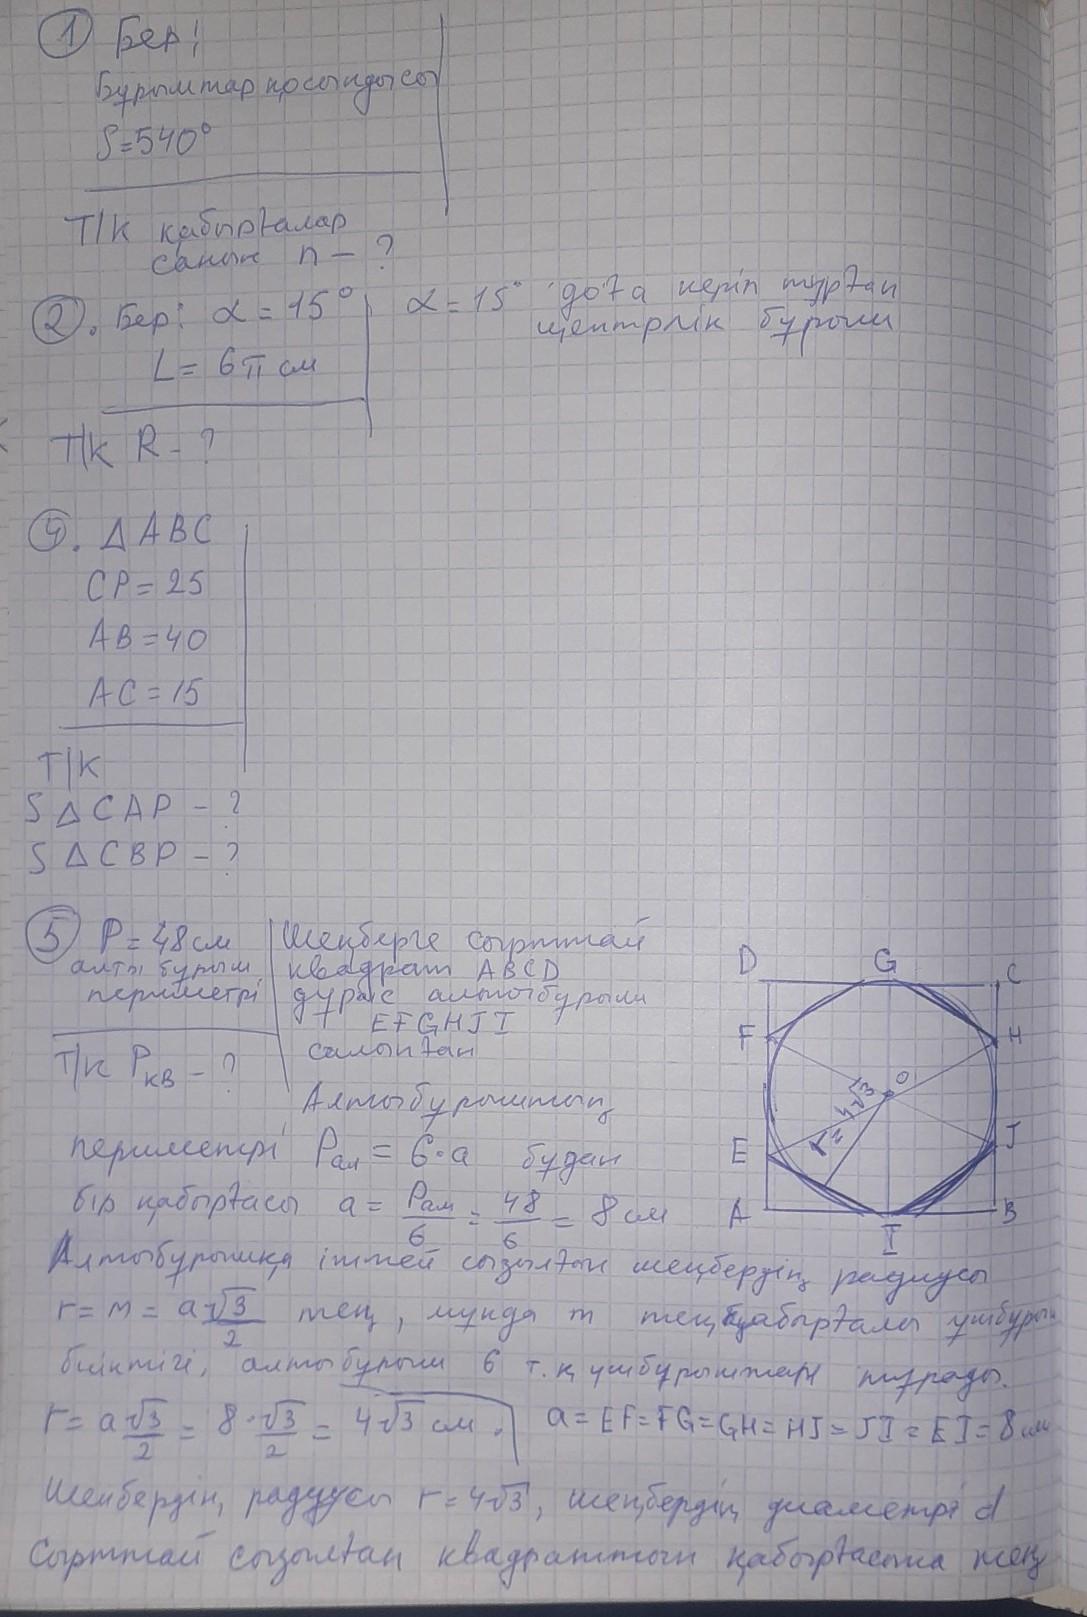 ① Бер:
Бұрыштар қосындысы
S=540°
Т/К қабырғалар
санын n - ?
②. Бер: α = 15° α = 15° доға керіп тұрған
L = 6π см центрлік бұрыш
Т/К R - ?
④. △ ABC
CP = 25
AB = 40
AC = 15
Т/К
S △ CAP - ?
S △ CBP - ?
⑤ P = 48 см Шеңберге сырттай
алты бұрыш квадрат ABCD
периметрі дұрыс алтыбұрыш
EFGHJI
Т/К Pкв - ? салынған
D G C
F H
O
r = 4√3
E J
A I B
Алтыбұрыштың
периметрі Pал = 6·a бұдан
бір қабырғасы a = Pал/6 = 48/6 = 8 см
Алтыбұрышқа іштей сызылған шеңбердің радиусы
r = m = a√3/2 тең, мұнда m теңқабырғалы үшбұрыш
биіктігі, алтыбұрыш 6 т.қ үшбұрыштан тұрады.
r = a√3/2 = 8·√3/2 = 4√3 см. a = EF = FG = GH = HJ = JI = EI = 8 см
Шеңбердің радиусы r = 4√3, шеңбердің диаметрі d
Сырттай сызылған квадраттың қабырғасына тең